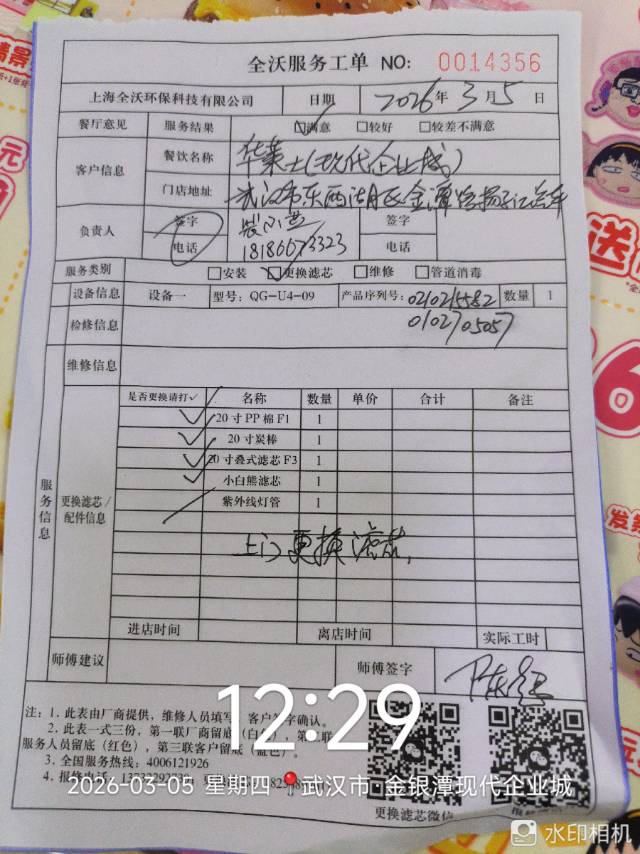 全沃服务工单 NO: 0014356
上海全沃环保科技有限公司 日期 2026年3月5日
餐厅意见 服务结果 ☑满意 □较好 □较差不满意
客户信息 餐饮名称 华莱士(现代企业城)
门店地址 武汉市东西湖区金潭路扬子江
负责人 签字 签字
电话 18186073323 电话
服务类别 □安装 ☑更换滤芯 □维修 □管道消毒
设备信息 设备一 型号：QG-U4-09 产品序列号： 0210215582 数量 1
0102705057
检修信息
维修信息
是否更换请打✓ 名称 数量 单价 合计 备注
✓ 20寸PP棉F1 1
✓ 20寸炭棒 1
✓ 20寸叠式滤芯F3 1
✓ 小白熊滤芯 1
紫外线灯管 1
服务信息
更换滤芯/配件信息
上门更换滤芯.
进店时间 离店时间 实际工时
师傅建议 师傅签字
注：1、此表由厂商提供，维修人员填写，客户签字确认。
2、此表一式三份，第一联厂商留底（白色），第二联
服务人员留底（红色），第三联客户留底（蓝色）。
3、全国服务热线：4006121926
4、报修电话：
更换滤芯微信
12:29
2026-03-05 星期四 武汉市·金银潭现代企业城
水印相机